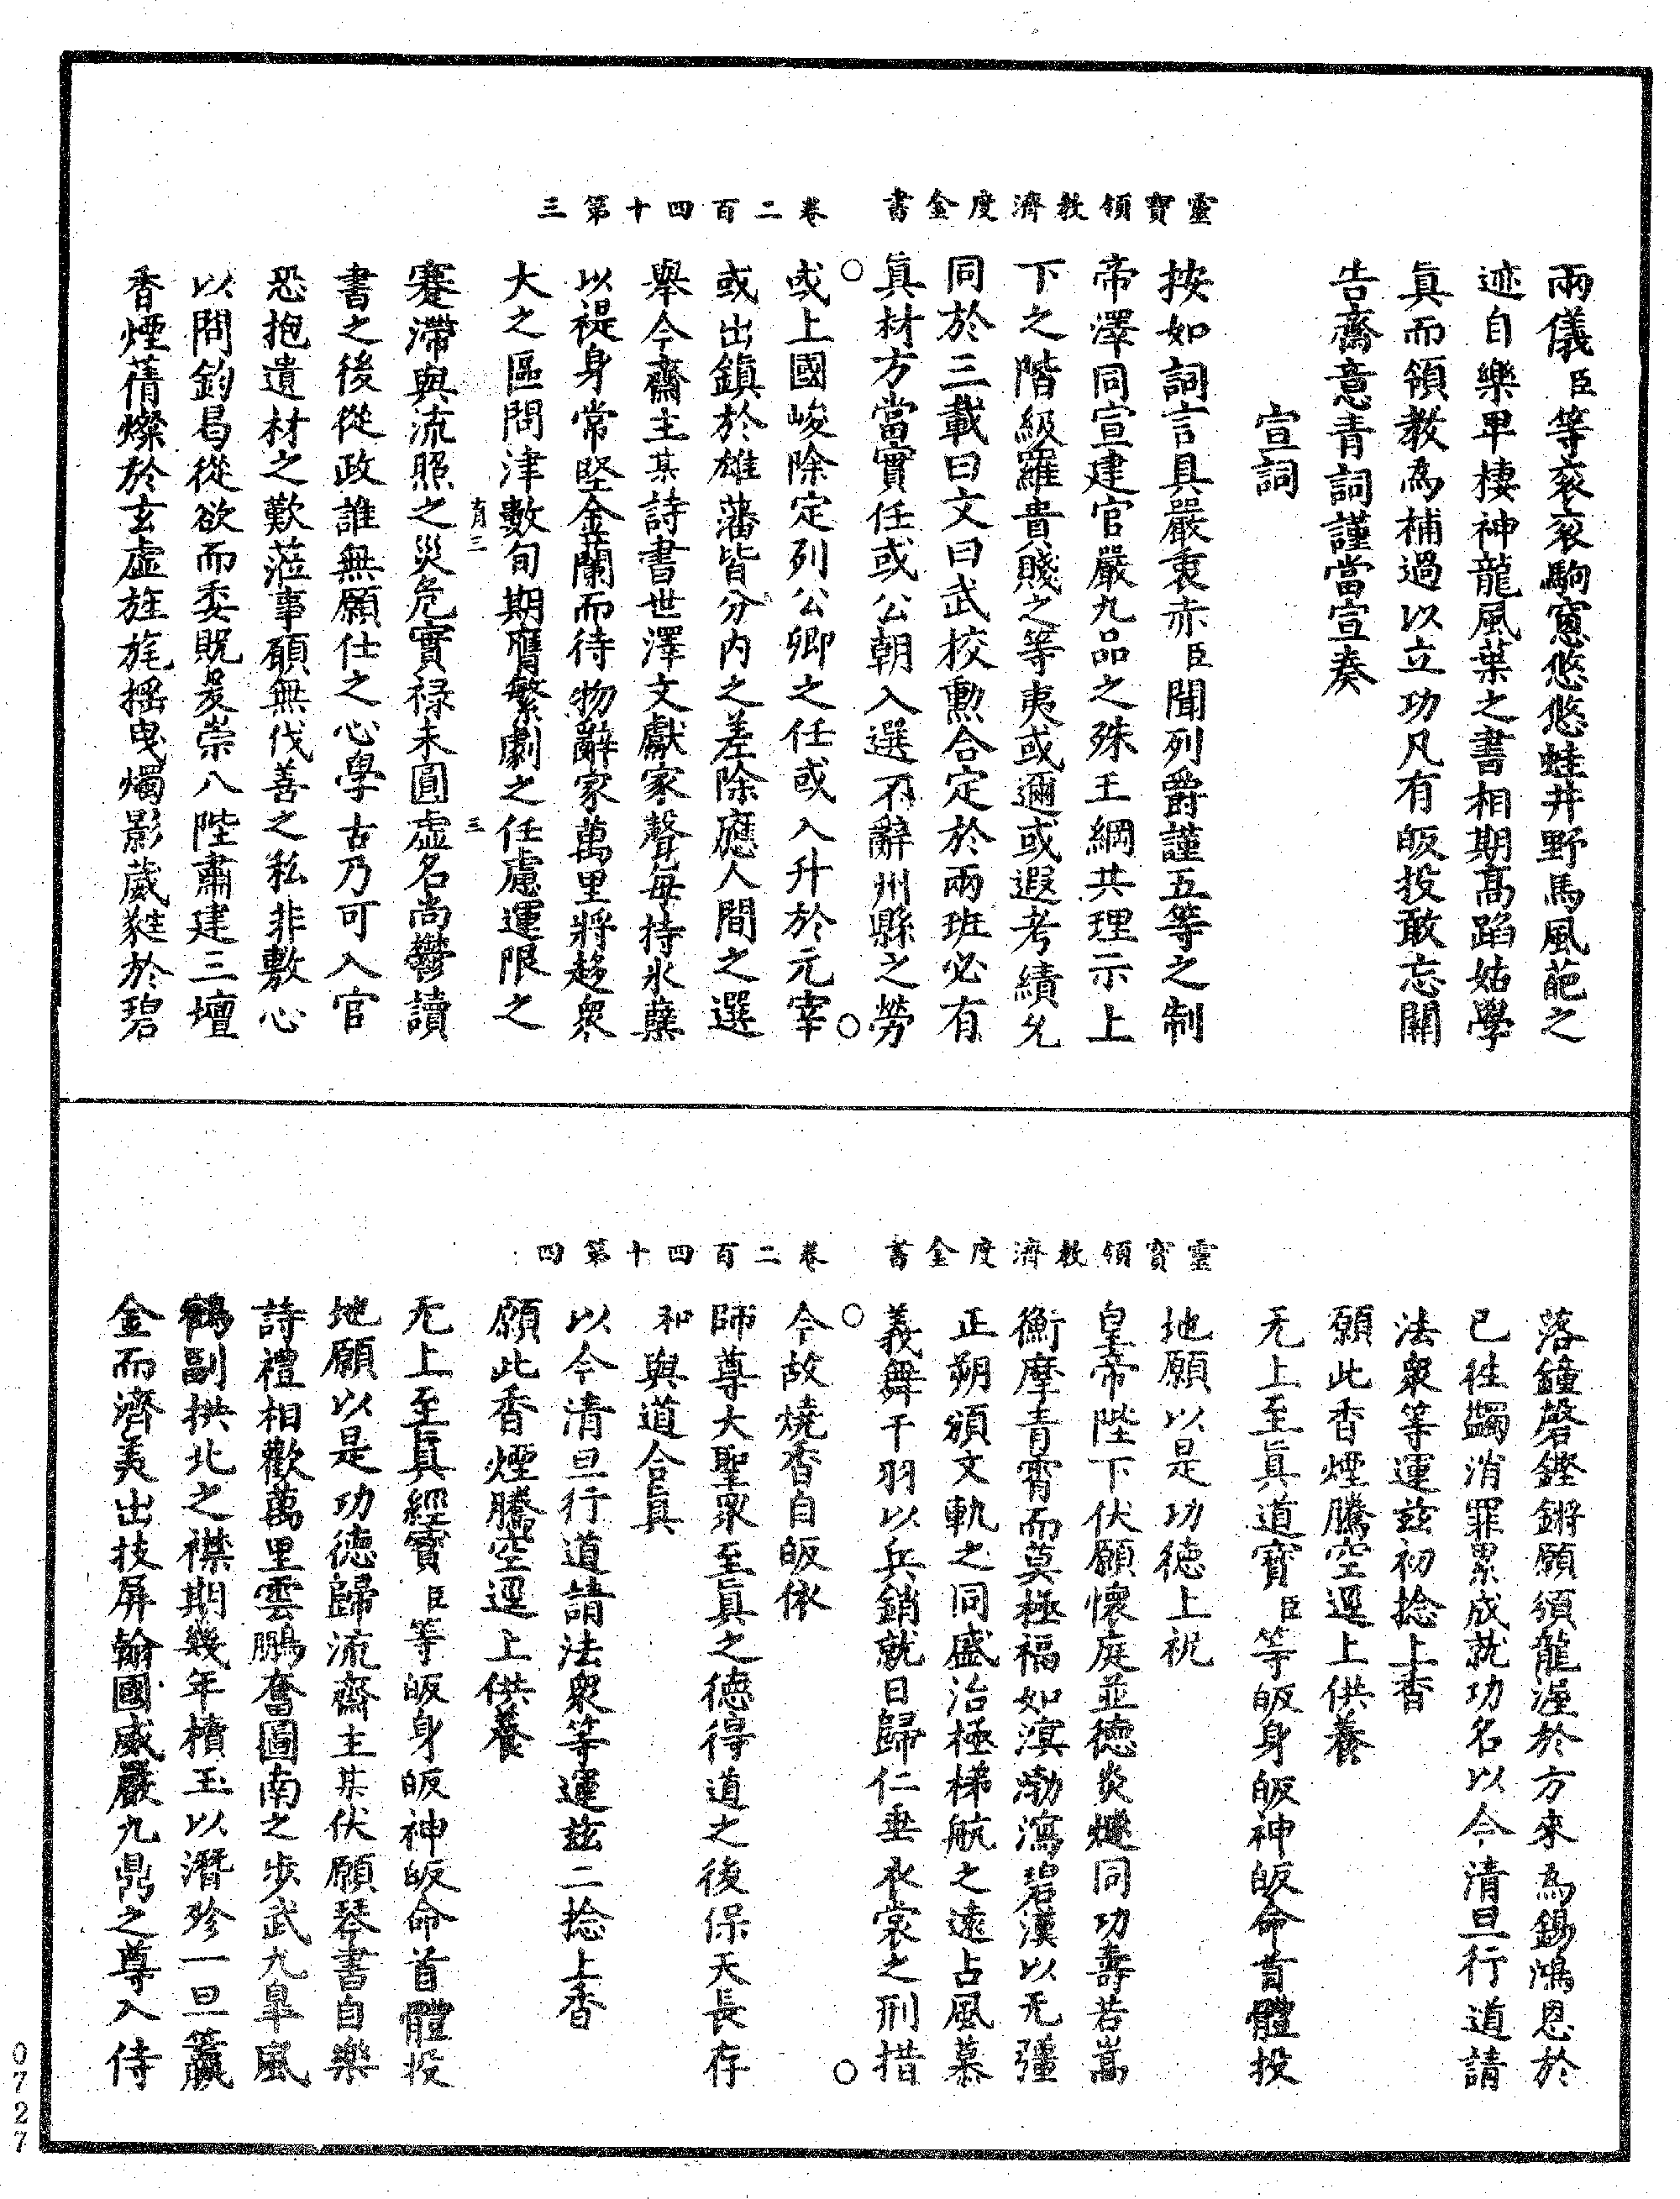 靈寶領教濟度金書　卷二百四十第三
兩儀臣等袞袞駒窻悠悠蛙井野馬風葩之
迹自樂卑棲神龍風葉之書相期高蹈姑學
眞而領教為補過以立功凡有皈投敢忘關
告齋意青詞謹當宣奏
宣詞
按如詞言具嚴衷赤臣聞列爵謹五等之制
帝澤同宣建官嚴九品之殊王綱共理示上
下之階級羅貴賤之等夷或邇或遐考績允
同於三載曰文曰武校勳合定於兩班必有
眞材方當實任或公朝入選不辭州縣之勞
或上國峻除定列公卿之任或入升於元宰
或出鎮於雄藩皆分內之差除應人間之選
舉今齋主某詩書世澤文獻家聲每持氷蘗
以禔身常堅金蘭而待物辭家萬里將趍衆
大之區問津數旬期膺繁劇之任慮運限之
蹇滯與流照之災危實祿未圓虛名尚鬱讀
書之後從政誰無願仕之心學古乃可入官
恐抱遺材之歎蒞事願無伐善之私非敷心
以問鈞曷從欲而委貺爰崇八陛肅建三壇
香煙蒨燦於玄虛旌旄揺曳燭影葳蕤於碧
靈寶領教濟度金書　卷二百四十第四
落鐘磬鏗鏘願頒龍渥於方來為錫鴻恩於
已往蠲消罪累成就功名以今清旦行道請
法衆等運兹初捻上香
願此香煙騰空逕上供養
无上至眞道寶臣等皈身皈神皈命首體投
地願以是功德上祝
皇帝陛下伏願懷庭並德炎燧同功壽若嵩
衡摩青霄而莫極福如溟渤瀉碧漢以无彊
正朔頒文軌之同盛治極梯航之遠占風慕
義舞干羽以兵銷就日歸仁垂衣裳之刑措
今故燒香自皈依
師尊大聖衆至眞之德得道之後保天長存
和與道合眞
以今清旦行道請法衆等運兹二捻上香
願此香煙騰空逕上供養
无上至眞經寶臣等皈身皈神皈命首體投
地願以是功德歸流齋主某伏願琴書自樂
詩禮相歡萬里雲鵬奮圖南之步武九臯風
鶴副拱北之襟期幾年櫝玉以潛珍一旦籯
金而濟美出技屏翰國威嚴九鼎之尊入侍
0727